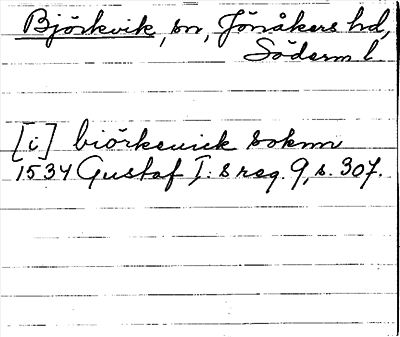 Björkvik, sn, Jönåkers hd,
Söderm l.
[i] biörkeuick soknn
1534 Gustaf I:s reg. 9, s. 307.